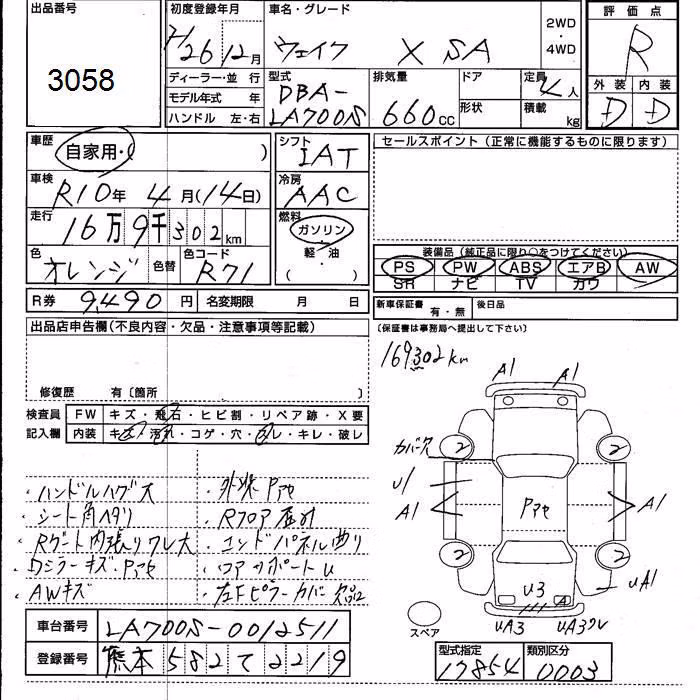 出品番号
3058
初度登録年月
H26年12月
車名・グレード
ウェイク X SA
2WD
・
4WD
評価点
R
外装 内装
D D
ディーラー・並 行
モデル年式 年
ハンドル 左・右
型式
DBA-
LA700S
排気量
660cc
ドア
形状
定員
4人
積載
kg
車歴
自家用・( )
シフト
IAT
セールスポイント (正常に機能するものに限ります)
車検
R10年 4月(14日)
冷房
AAC
走行
16万9千302km
燃料
ガソリン
・
軽・油
( )
色
オレンジ
色替
色コード
R71
装備品(純正品に限り○をつけてください)
PS PW ABS エアB AW
SR ナビ TV カワ
R券 9,490円 名変期限 月 日
新車保証書 有・無
後日品
(保証書は事務局へ提出して下さい)
出品店申告欄(不良内容・欠品・注意事項等記載)
修復歴 有〔箇所 〕
検査員
記入欄
FW キズ・飛石・ヒビ割・リペア跡・X要
内装 キズ・汚れ・コゲ・穴・スレ・キレ・破レ
169302km
A1 A1
カバー欠
2 2
U1
A1
Pアセ
A1
2 2
U3
A
UA1
UA3 UA3ワレ
スペア
・ハンドルハゲ大
・シート角ヘタリ
・Rゲート内張りワレ大
・Dミラーキズ・Pアセ
・AWキズ
・外装Pアセ
・Rフロア歪み
・エンドパネル曲り
・コアサポートU
・左Fピラーカバー欠品
車台番号 LA700S-0012511
登録番号 熊本582て2219
型式指定
17854
類別区分
0003